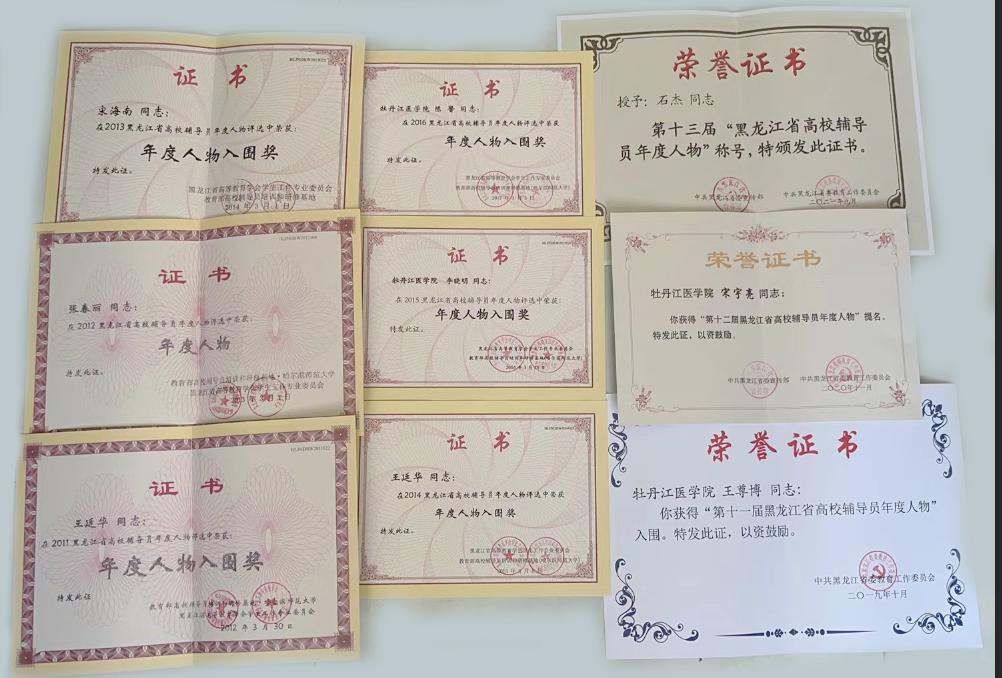 证书
宋海南 同志：
在2013黑龙江省高校辅导员年度人物评选中荣获：
年度人物入围奖
特发此证。
黑龙江省高等教育学会学生工作专业委员会
教育部高校辅导员培训和研修基地
2014年3月1日
证书
牡丹江医学院 陈 馨 同志：
在2016黑龙江省高校辅导员年度人物评选中荣获
年度人物入围奖
特发此证。
黑龙江省高等教育学会学生工作专业委员会
教育部高校辅导员培训和研修基地(哈尔滨师范大学)
荣誉证书
授予：石杰 同志
第十三届“黑龙江省高校辅导
员年度人物”称号，特颁发此证书。
中共黑龙江省委宣传部
中共黑龙江省委教育工作委员会
证书
张春丽 同志：
在2012黑龙江省高校辅导员年度人物评选中荣获：
年度人物
特发此证。
教育部高校辅导员培训和研修基地·哈尔滨师范大学
黑龙江省高等教育学会学生工作专业委员会
证书
牡丹江医学院 李晓明 同志：
在2015黑龙江省高校辅导员年度人物评选中荣获：
年度人物入围奖
特发此证。
黑龙江省高等教育学会学生工作专业委员会
教育部高校辅导员培训和研修基地(哈尔滨师范大学)
荣誉证书
牡丹江医学院 宋宇亮 同志：
你获得“第十二届黑龙江省高校辅导员年度人物”提名。
特发此证，以资鼓励。
中共黑龙江省委宣传部
中共黑龙江省委教育工作委员会
二〇二〇年十一月
证书
王廷华 同志：
在2011黑龙江省高校辅导员年度人物评选中荣获：
年度人物入围奖
特发此证
2012年3月30日
证书
王廷华 同志：
在2014黑龙江省高校辅导员年度人物评选中荣获
年度人物入围奖
特发此证。
黑龙江省高等教育学会学生工作专业委员会
教育部高校辅导员培训和研修基地(哈尔滨师范大学)
荣誉证书
牡丹江医学院 王尊博 同志：
你获得“第十一届黑龙江省高校辅导员年度人物”
入围。特发此证，以资鼓励。
中共黑龙江省委教育工作委员会
二〇一九年十月